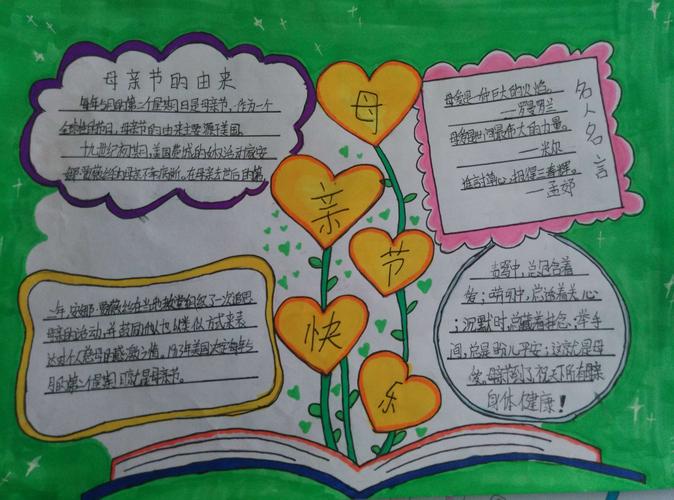 母亲节的由来
每年5月的第二个星期日是母亲节,作为一个
全球性的节日,母亲节的由来主要源于美国。
十九世纪初期,美国费城的
母
亲
节
快
乐
母爱是一种巨大的火焰。
——罗曼罗兰
母爱是世间最伟大的力量。
——米尔
谁言寸草心,报得三春晖。
——孟郊
名人名言
一年,安娜·贾薇丝在当地教堂组织了一次追思
母亲的活动,并鼓励他人也以类似方式来表
达对个人慈母的感激之情。1913年美国大定每年5
月的第二个星期日就是母亲节。
责骂中,总包含着
爱;叮咛中,总透着关心
;沉默时,总藏着挂念;举手
间,总是盼儿平安;这就是母
爱,母亲节到了祝天下所有母亲
身体健康!